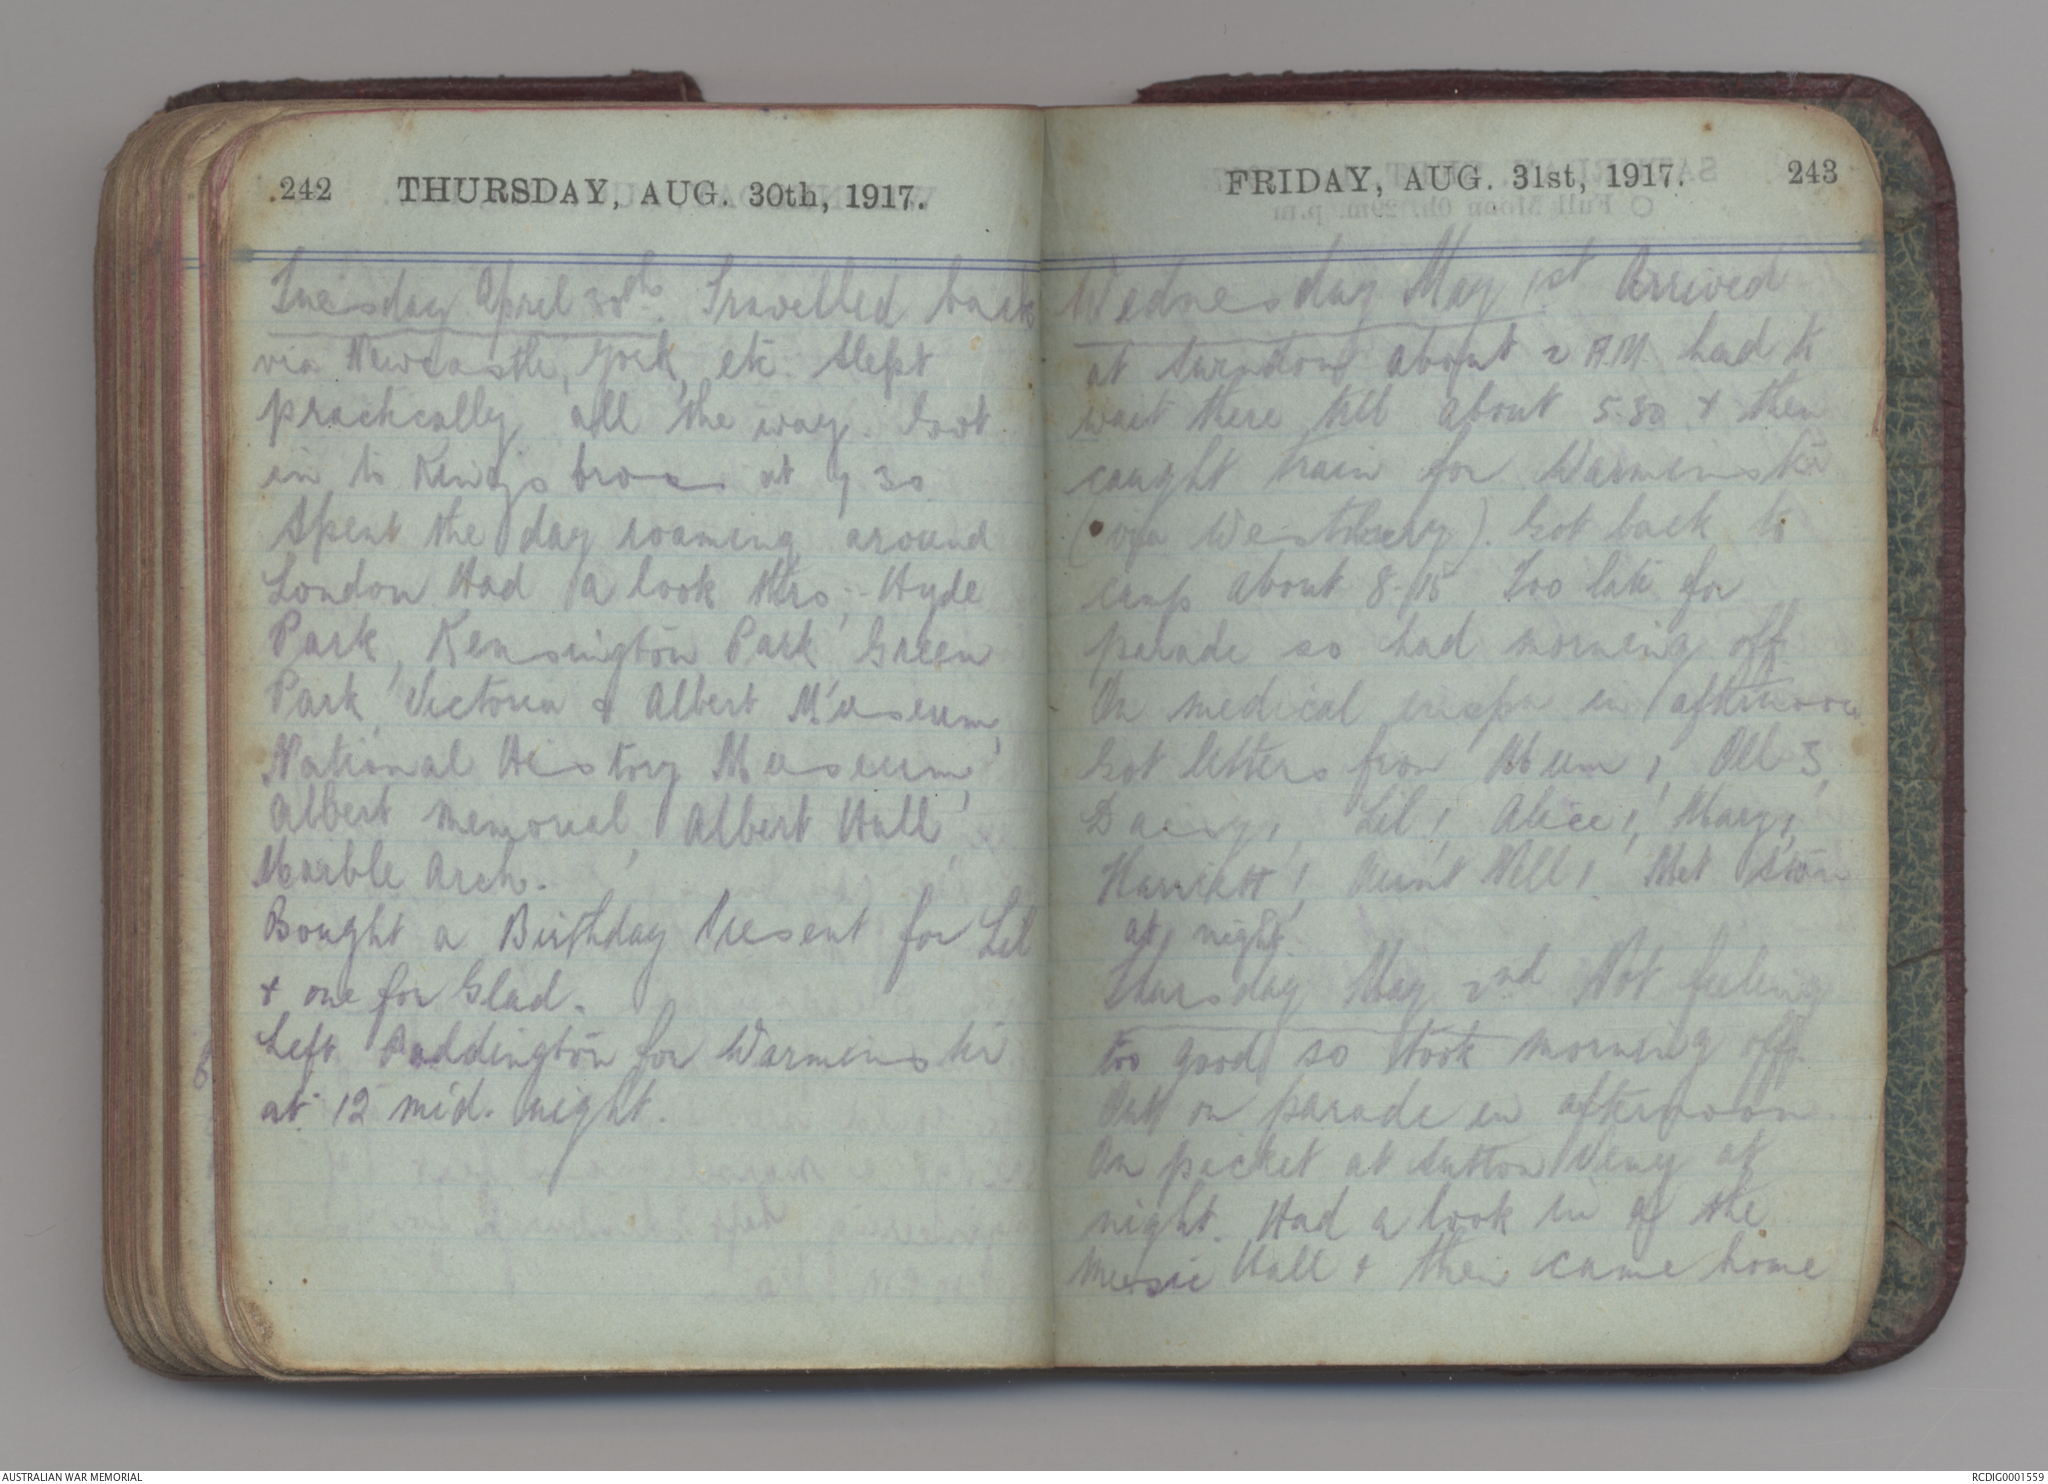 242 THURSDAY, AUG. 30th, 1917.
Tuesday April 30th. Travelled back
via Newcastle, York, etc. Slept
practically all the way. Got
in to Kings Cross at 7 30
Spent the day roaming around
London Had a look thro; Hyde
Park, Kensington Park, Green
Park, Victoria & Albert Museum,
National History Museum,
Albert Memorial, Albert Hall,
Marble Arch.
Bought a Birthday Present for Lil
& one for Glad.
Left Paddington for Warminster
at 12 mid. night.
FRIDAY, AUG. 31st, 1917. 243
Wednesday May 1st Arrived
at about 2 A.M. had to
wait there till about 5.30 & then
caught train for Warminster
(via Westbury). Got back to
camp about 8.15 Too late for
parade so had morning off.
On medical inspn in afternoon
Got letters from Mum 1, All 3,
Daisy 1, Lil 1, Alice 1, Mary 1,
Harriett 1, Aunt Nell 1. Met
at night.
Thursday May 2nd Not feeling
too good so took morning off.
Out on parade in afternoon
On picket at Sutton Veny at
night. Had a look in at the
Music Hall & then came home
AUSTRALIAN WAR MEMORIAL
RCDIG0001559